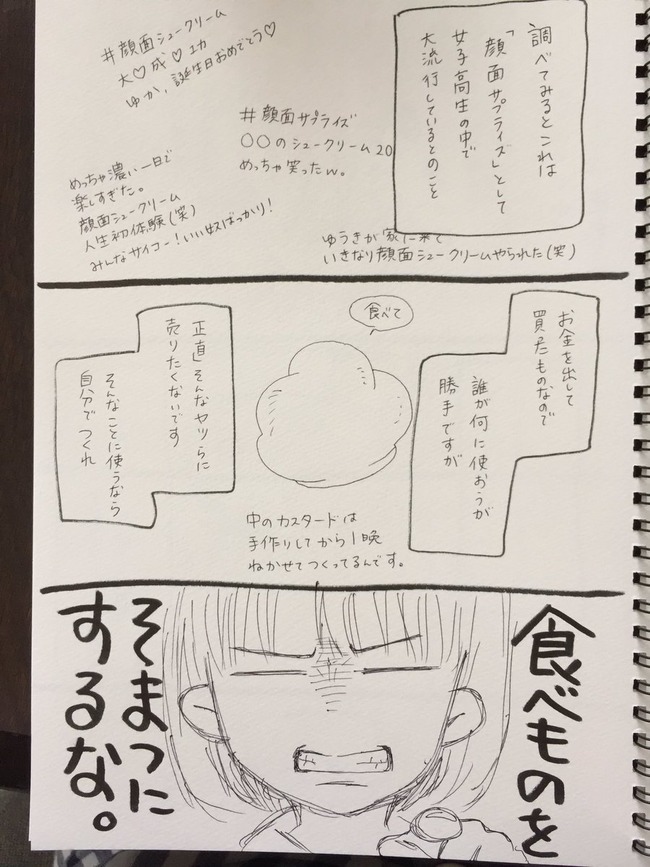 調べてみるとこれは
「顔面サプライズ」として
女子高生の中で
大流行しているとのこと
#顔面シュークリーム
大♡成♡功
ゆか、誕生日おめでとう♡
#顔面サプライズ
〇〇のシュークリーム20
めっちゃ笑ったw。
めっちゃ濃い一日で
楽しすぎた。
顔面シュークリーム
人生初体験(笑)
みんなサイコー!いい奴ばっかり!
ゆうきが家に来て
いきなり顔面シュークリームやられた(笑)
お金を出して
買ったものなので
誰が何に使おうが
勝手ですが
食べて
中のカスタードは
手作りしてから1晩
ねかせてつくってるんです。
正直そんなヤツらに
売りたくないです
そんなことに使うなら
自分でつくれ
食べものを
そまつに
するな。